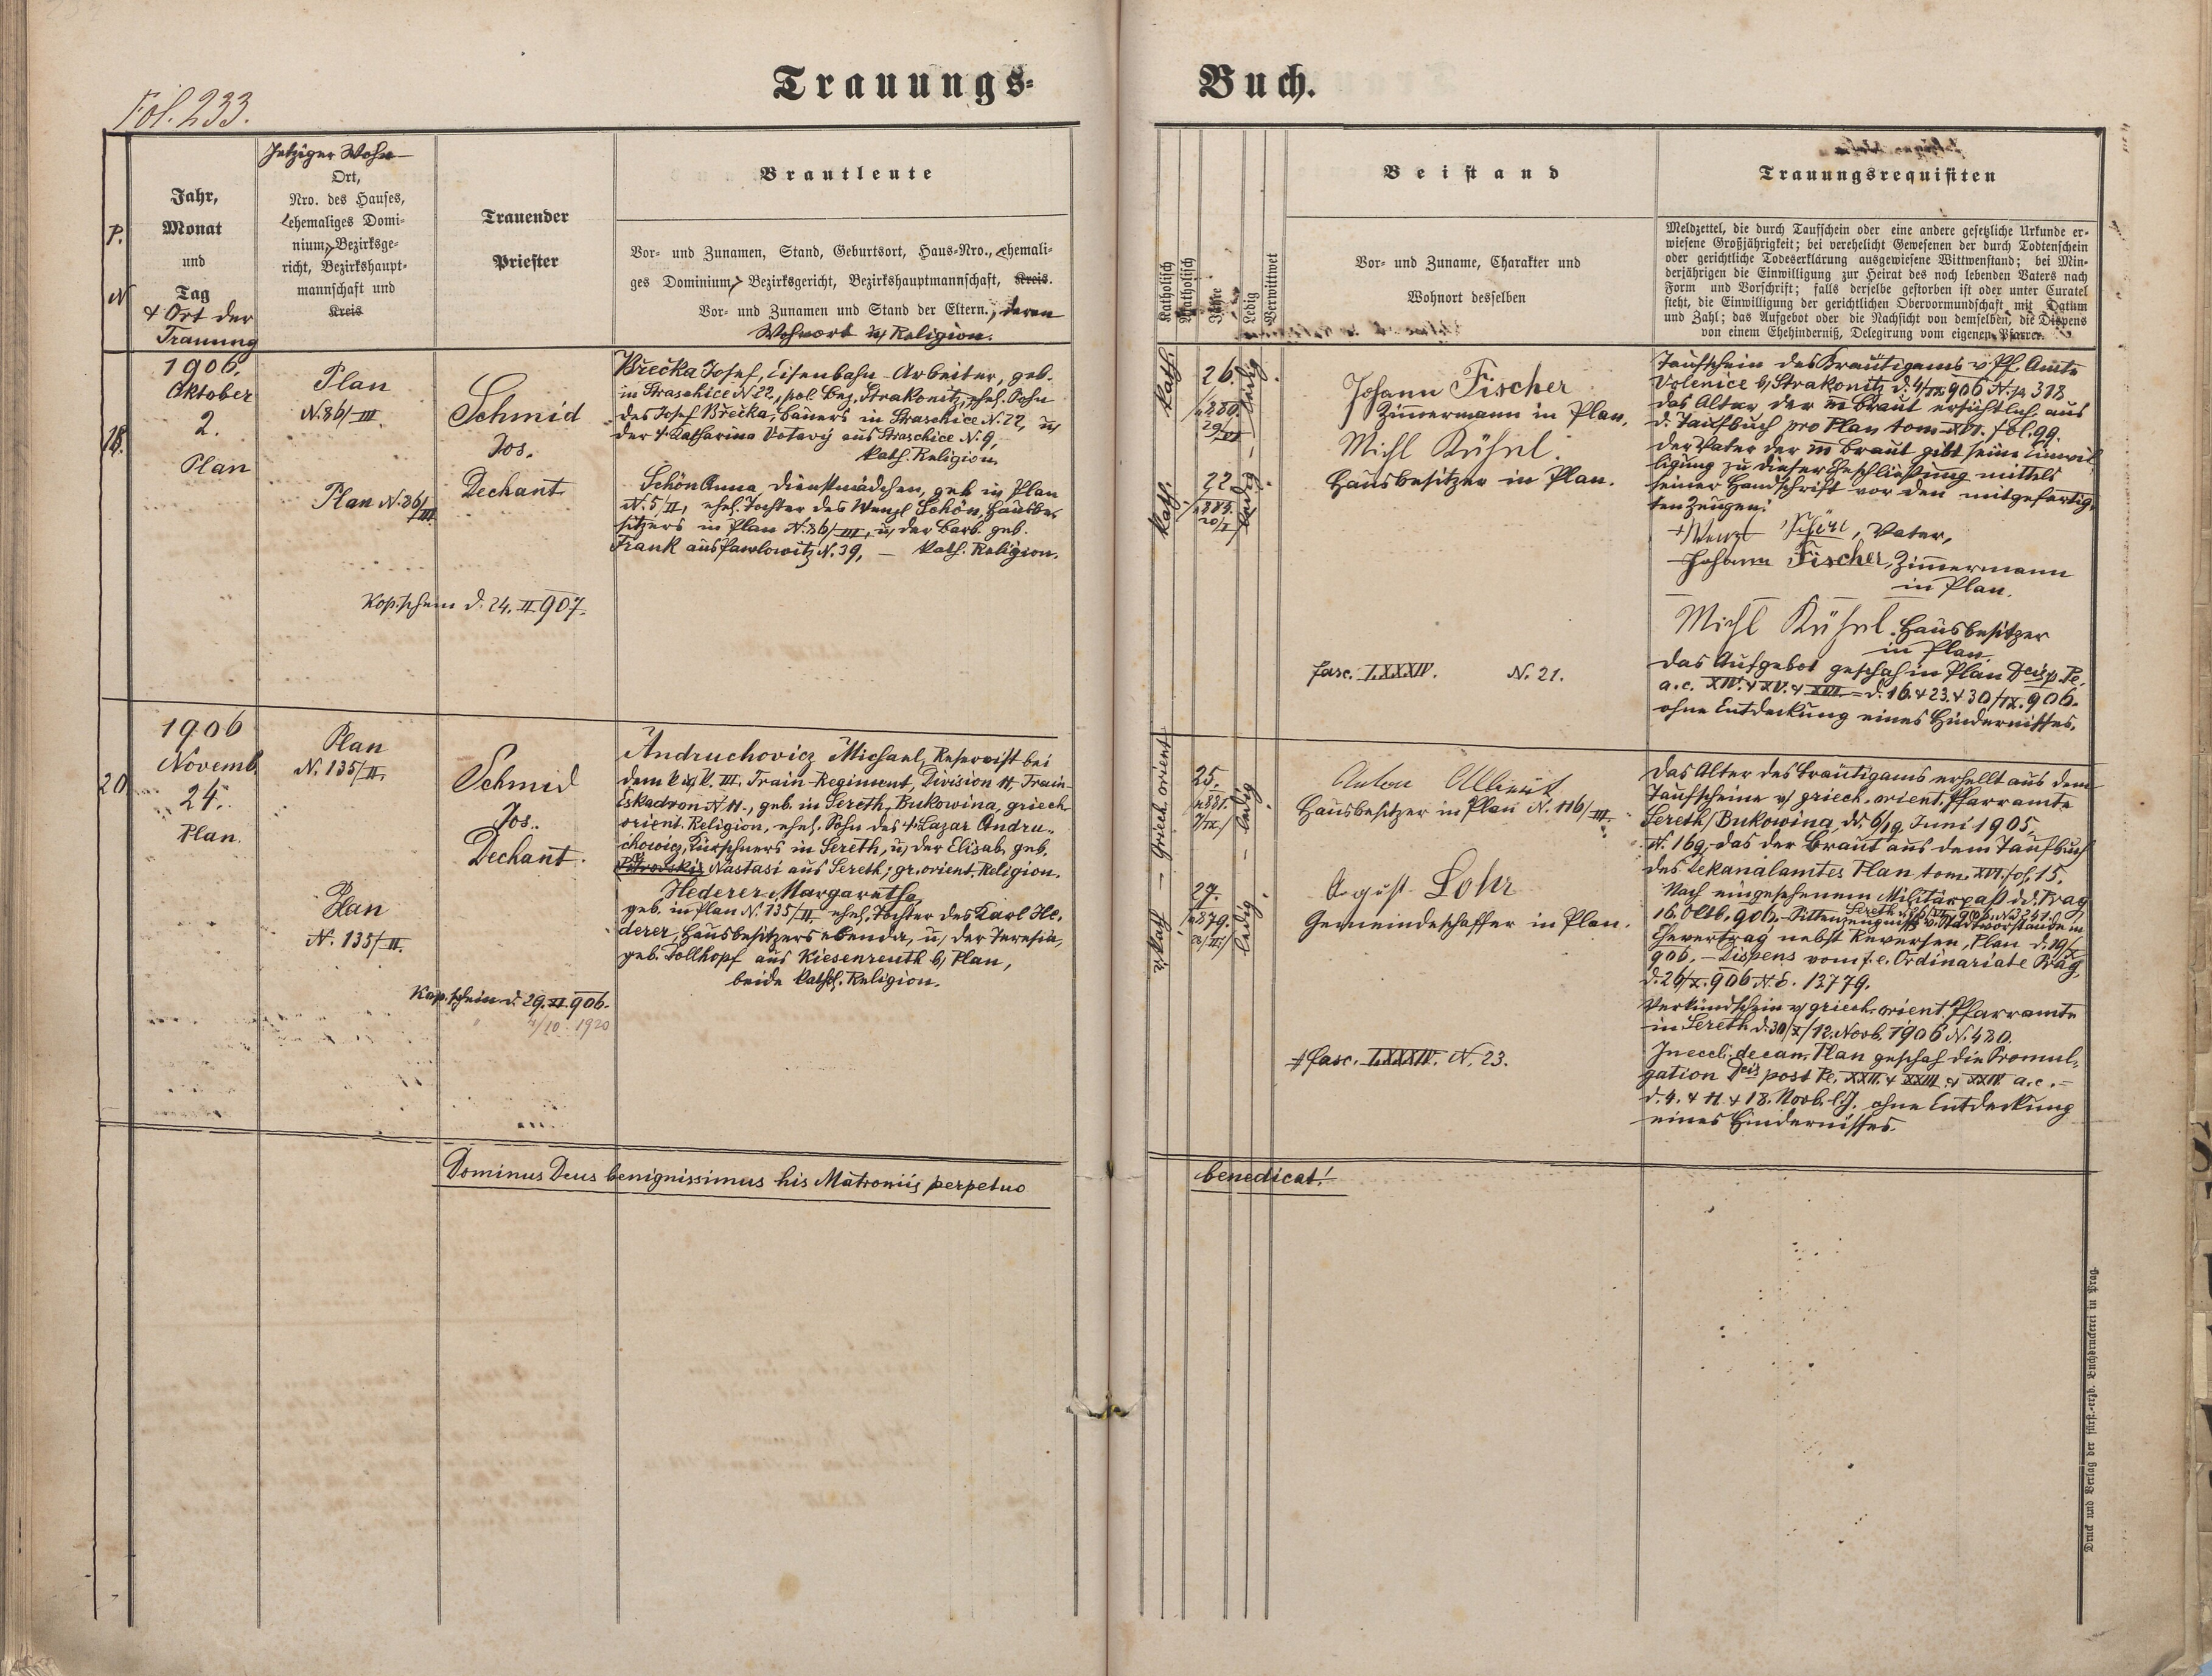 Trauungs-
Buch.
Fol. 233.
P.
N
Jahr,
Monat
und
Tag
& Ort der
Trauung
Jetziger Wohn-
Ort,
Nro. des Hauses,
(ehemaliges Domi-
nium) Bezirksge-
richt, Bezirkshaupt-
mannschaft und
Kreis
Trauender
Priester
Brautleute
Vor- und Zunamen, Stand, Geburtsort, Haus-Nro., (ehemali-
ges Dominium) Bezirksgericht, Bezirkshauptmannschaft, Kreis.
Vor- und Zunamen und Stand der Eltern., deren
Wohnort u. Religion.
Katholisch
Akatholisch
Jahre
Ledig
Verwittwet
Beistand
Vor- und Zuname, Charakter und
Wohnort desselben
Trauungsrequisiten
Meldzettel, die durch Taufschein oder eine andere gesetzliche Urkunde er-
wiesene Großjährigkeit; bei verehelicht Gewesenen der durch Todtenschein
oder gerichtliche Todeserklärung ausgewiesene Wittwenstand; bei Min-
derjährigen die Einwilligung zur Heirat des noch lebenden Vaters nach
Form und Vorschrift; falls derselbe gestorben ist oder unter Curatel
steht, die Einwilligung der gerichtlichen Obervormundschaft mit Datum
und Zahl; das Aufgebot oder die Nachsicht von demselben, die Dispens
von einem Ehehinderniß, Delegirung vom eigenen Pfarrer.
1906.
Oktober
2.
Plan
Plan
N. 86/III.
Plan N. 86/
III
Schmid
Jos.
Dechant
Břečka Josef, Eisenbahn-Arbeiter, geb.
in Straschice N. 22, pol. Bez. Strakonitz, ehel. Sohn
des Josef Břečka, Bauers in Straschice N. 22, u.
der † Katharina Votavý aus Straschice N. 9,
kath. Religion.
Schön Anna Dienstmädchen, geb. in Plan
N. 5/II, ehel. Tochter des Wenzl Schön, Hausbe-
sitzers in Plan N. 86/III, u. der Barb. geb.
Frank aus Pawlowitz N. 39, — kath. Religion.
Kop.schein d. 24. II. 907.
kath.
26.
1880.
29/
ledig
kath.
22
20/I
ledig.
Johann Fischer
Zimmermann in Plan,
Michl Kühnl.
Hausbesitzer in Plan.
fasc. LXXXIV. N. 21.
Taufschein des Bräutigams v. Pf. Amte
Volenice b. Strakonitz d. 4/IX 906 N. 318
das Alter der m Braut ersichtlich aus
d. Taufbuch pro Plan tom. XVI. fol. 99.
Der Vater der m Braut gibt seine Einwil-
ligung zu dieser Eheschließung mittels
seiner Handschrift vor den mitgefertig-
ten Zeugen:
+ Wenzl Schön, Vater,
Johann Fischer, Zimmermann
in Plan.
Michl Kühnl. Hausbesitzer
in Plan.
Das Aufgebot geschah in Plan Dcis p. Pe.
a. c. XIV. & XV. & XVII. = d. 16. & 23. & 30/IX. 906.
ohne Entdeckung eines Hindernisses.
20.
1906
Novemb.
24.
Plan.
Plan
N. 135/II.
Plan
N. 135/II.
Schmid
Jos.
Dechant.
Andruchovicz Michael, Reservist bei
dem k. u. k. III. Train-Regiment, Division 11, Train-
Eskadron N. 11., geb. in Sereth, Bukowina, griech.
orient. Religion, ehel. Sohn des † Lazar Andru-
chowicz, Kürschners in Sereth, u. der Elisab. geb.
Nastasi aus Sereth; gr. orient. Religion.
Hederer Margaretha,
geb. in Plan N. 135/II ehel. Tochter des Karl He-
derer, Hausbesitzers ebenda, u. der Teresia,
geb. Tollhopf aus Kiesenreuth b. Plan,
beide kathol. Religion.
Kop.schein d. 29. XI. 906.
2/10. 1920
griech. orient
25.
1881.
7/IX.
ledig
kath
27.
1879.
ledig.
Anton
Hausbesitzer in Plan N. 116/III.
August Lohr
Gemeindeschaffer in Plan.
fasc. LXXXIV. N. 23.
Das Alter des Bräutigams erhellt aus dem
Taufscheine v. griech. orient. Pfarramte
Sereth/Bukowina, dd. 6/19. Juni 1905,
N. 169, das der Braut aus dem Taufbuch
des Dekanalamtes Plan tom. XVI. fol. 15.
Nach eingesehenem Militärpaß dd. Prag
16. Oktb. 902, Sittenzeugniß v. Stadtvorstande in
Sereth
Ehevertrag nebst Reversen, Plan d. 19/X
906. — Dispens vom f. e. Ordinariate Prag,
d. 26/X. 906 N. E. 13779.
Verkündschein v. griech. orient. Pfarramte
in Sereth d. 30/X/12. Novb. 1906 N. 480.
In eccli. decan. Plan geschah die Promul-
gation Dcis post Pe. XXII. & XXIII. & XXIV. a. c. =
d. 4. & 11. & 18. Novb. l. J. ohne Entdeckung
eines Hindernisses.
Dominus Deus benignissimus his Matroniis perpetuo
benedicat!
Druck und Verlag der fürst.-erzb. Buchdruckerei in Prag.